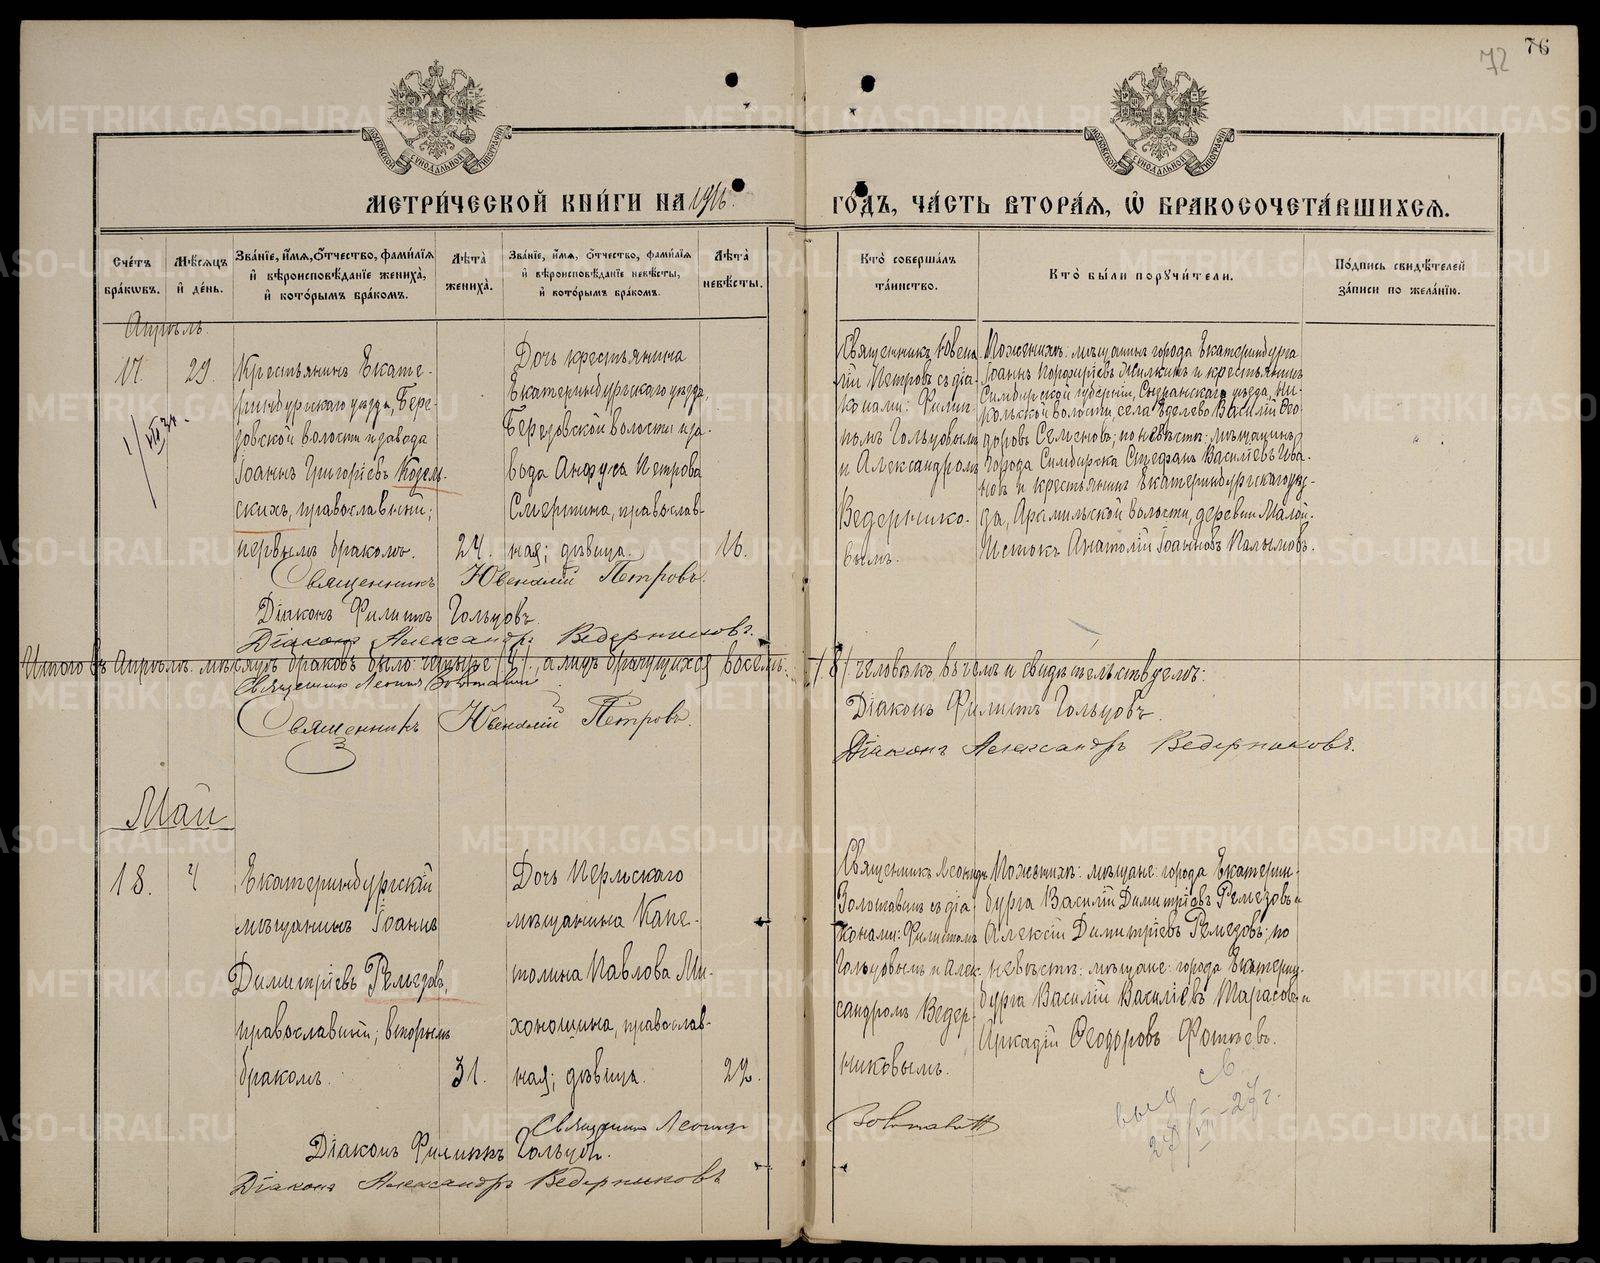 72 76
МОСКОВСКОЙ СѴНОДАЛЬНОЙ ТИПОГРАФІИ
МОСКОВСКОЙ СѴНОДАЛЬНОЙ ТИПОГРАФІИ
МЕТРИ́ЧЕСКОЙ КНИ́ГИ НА 1916.
ГО́ДЪ, ЧА́СТЬ ВТОРА́Я, Ѡ҆ БРАКОСОЧЕТА́ВШИХСЯ.
Сче́тъ бра́ковъ.
Мѣ́сяцъ и҆ де́нь.
Зва́нїе, и҆́мя, ѻ҆́тчество, фами́лїя
и҆ вѣроисповѣ́данїе жениха̀,
и҆ кото́рымъ бра́комъ.
Лѣ́та̀ жениха̀.
Зва́нїе, и҆́мя, ѻ҆́тчество, фами́лїя
и҆ вѣроисповѣ́данїе невѣ́сты,
и҆ кото́рымъ бра́комъ.
Лѣ́та̀ невѣ́сты.
Кто̀ соверша́лъ та́инство.
Кто̀ бы́ли поручи́тели.
По́дпись свидѣ́телей
за́писи по жела́нїю.
Апрѣль.
17. 29
Крестьянинъ Екате-
ринбургскаго уѣзда, Бере-
зовской волости и завода
Іоаннъ Григоріевъ Козель-
скихъ, православный;
первымъ бракомъ. 24.
Дочь крестьянина
Екатеринбургскаго уѣзда,
Березовской волости и за-
вода Анфуса Петрова
Смертина, православ-
ная; дѣвица. 16.
Священникъ Ювена-
лій Петровъ съ діа-
конами: Филип-
помъ Гольцовымъ
и Александромъ
Ведернико-
вымъ.
По женихѣ: мѣщанинъ города Екатеринбурга
Іоаннъ Порфиріевъ Жилкинъ и крестьянинъ
Симбирской губерніи, Сызранскаго уѣзда, Ни-
кольской волости, села Еделево Василій Ѳео-
доровъ Семеновъ; по невѣстѣ: мѣщанинъ
города Симбирска Стефанъ Василіевъ Ива-
новъ и крестьянинъ Екатеринбургскаго уѣз-
да, Арамильской волости, деревни Малой-
Истокъ Анатолій Іоанновъ Палымовъ.
Священникъ Ювеналій Петровъ.
Діаконъ Филиппъ Гольцовъ.
Діаконъ Александръ Ведерниковъ.
Итого въ Апрѣлѣ мѣсяцѣ браковъ было четыре /4/, а лицъ брачущихся восемь /8/ человѣкъ въ чемъ и свидѣтельствуемъ:
Священникъ Леонидъ
Священникъ Ювеналій Петровъ.
Діаконъ Филиппъ Гольцовъ.
Діаконъ Александръ Ведерниковъ.
Май
18. 4
Екатеринбургскій
мѣщанинъ Іоаннъ
Димитріевъ Ремезовъ,
православный; вторымъ
бракомъ. 31.
Дочь Пермскаго
мѣщанина Капе-
толина Павлова Ми-
хоношина, православ-
ная; дѣвица. 22.
Священникъ Леонидъ
съ діа-
конами: Филиппомъ
Гольцовымъ и Алек-
сандромъ Ведер-
никовымъ.
По женихѣ: мѣщане города Екатерин-
бурга Василій Димитріевъ Ремезовъ и
Алексій Димитріевъ Ремезовъ; по
невѣстѣ: мѣщане города Екатерин-
бурга Василій Василіевъ Тарасовъ и
Аркадій Ѳеодоровъ Фотѣевъ.
Священникъ Леонидъ
Діаконъ Филиппъ Гольцовъ.
Діаконъ Александръ Ведерниковъ
27/VII-27г.